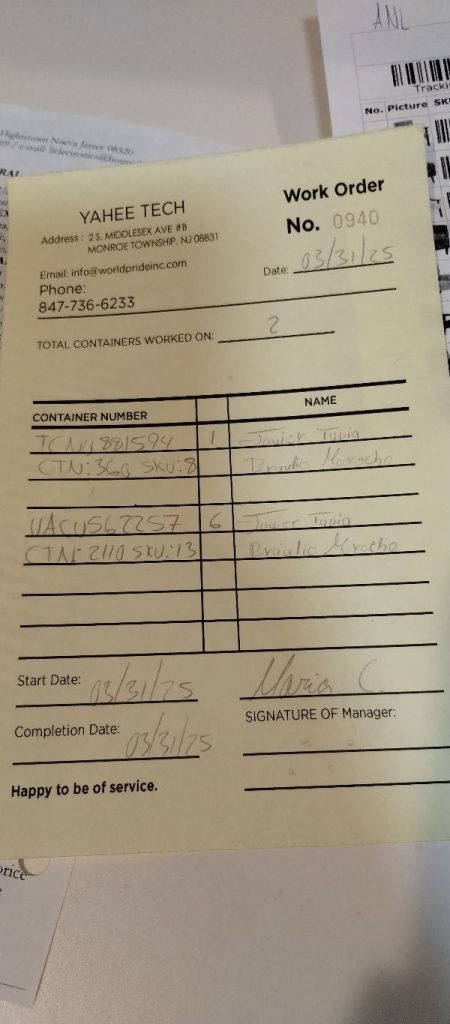 ANL
Tracki
No. Picture SK
Hightstown Nueva Jersey 08520
YAHEE TECH
Address : 2 S. MIDDLESEX AVE #B
MONROE TOWNSHIP, NJ 08831
Email: info@worldprideinc.com
Phone:
847-736-6233
Work Order
No. 0940
Date: 03/31/25
TOTAL CONTAINERS WORKED ON: 2
CONTAINER NUMBER NAME
881594 1 Javier Tapia
CTN: 360 SKU: 8 Braulio Morocho
UACU562257 6 Javier Tapia
CTN: 2110 SKU: 13 Braulio Mrocho
Start Date: 03/31/25
Maria C.
Completion Date: 03/31/25
SIGNATURE OF Manager:
Happy to be of service.